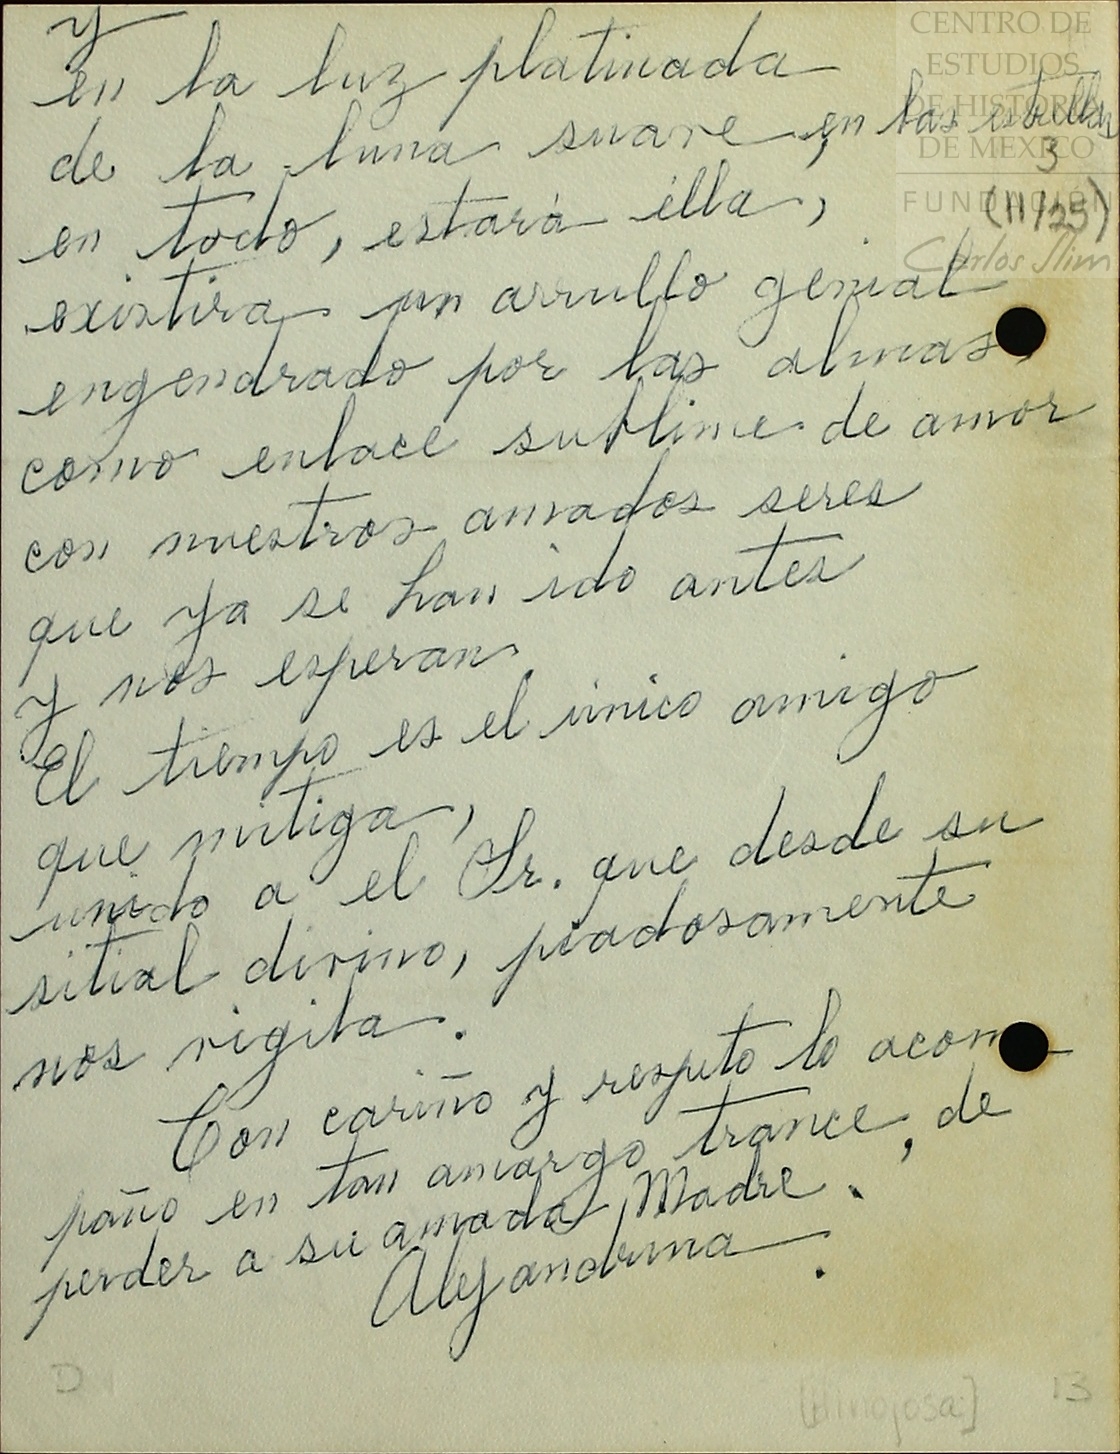 y
en la luz platinada
de la luna suave, en las estrellas
en todo, estará élla,
existira un arrullo genial
engendrado por las almas,
como enlace sublime de amor
con nuestros amados seres
que ya se han ido antes
y nos esperan
El tiempo es el único amigo
que mitiga,
unido a el Sr. que desde su
sitial divino, piadosamente
nos vigila.
Con cariño y respeto lo acom-
paño en tan amargo trance, de
perder a su amada Madre.
Alejandrina.
CENTRO DE
ESTUDIOS
DE HISTORIA
DE MEXICO
3
FUNDACIÓN
(11/25)
Carlos Slim
D 1
[Hinojosa]
13